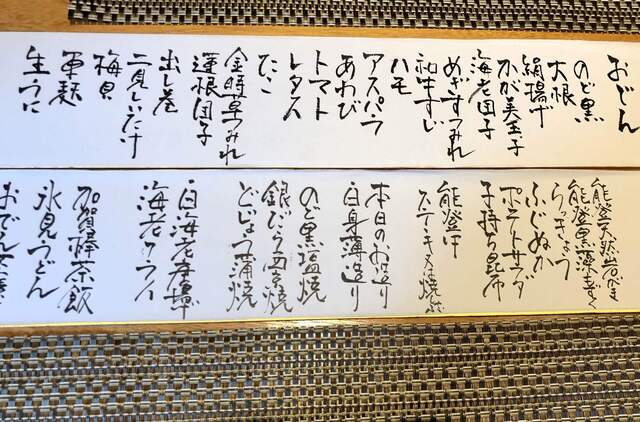 おでん
のど黒
大根
絹揚げ
かが美玉子
海老団子
めぎすつみれ
和牛すじ
ハモ
アスパラ
あわび
トマト
レタス
たこ
金時草つみれ
蓮根団子
出し巻
二見しいたけ
梅貝
車麩
生うに
能登天然岩がき
能登黒藻もずく
らっきょう
ふぐぬか
ポテトサラダ
子持ち昆布
能登牛
ステーキ又は焼しゃぶ
本日のお造り
白身薄造り
のど黒塩焼
銀だら西京焼
どじょう蒲焼
白海老唐揚
海老フライ
加賀棒茶飯
氷見うどん